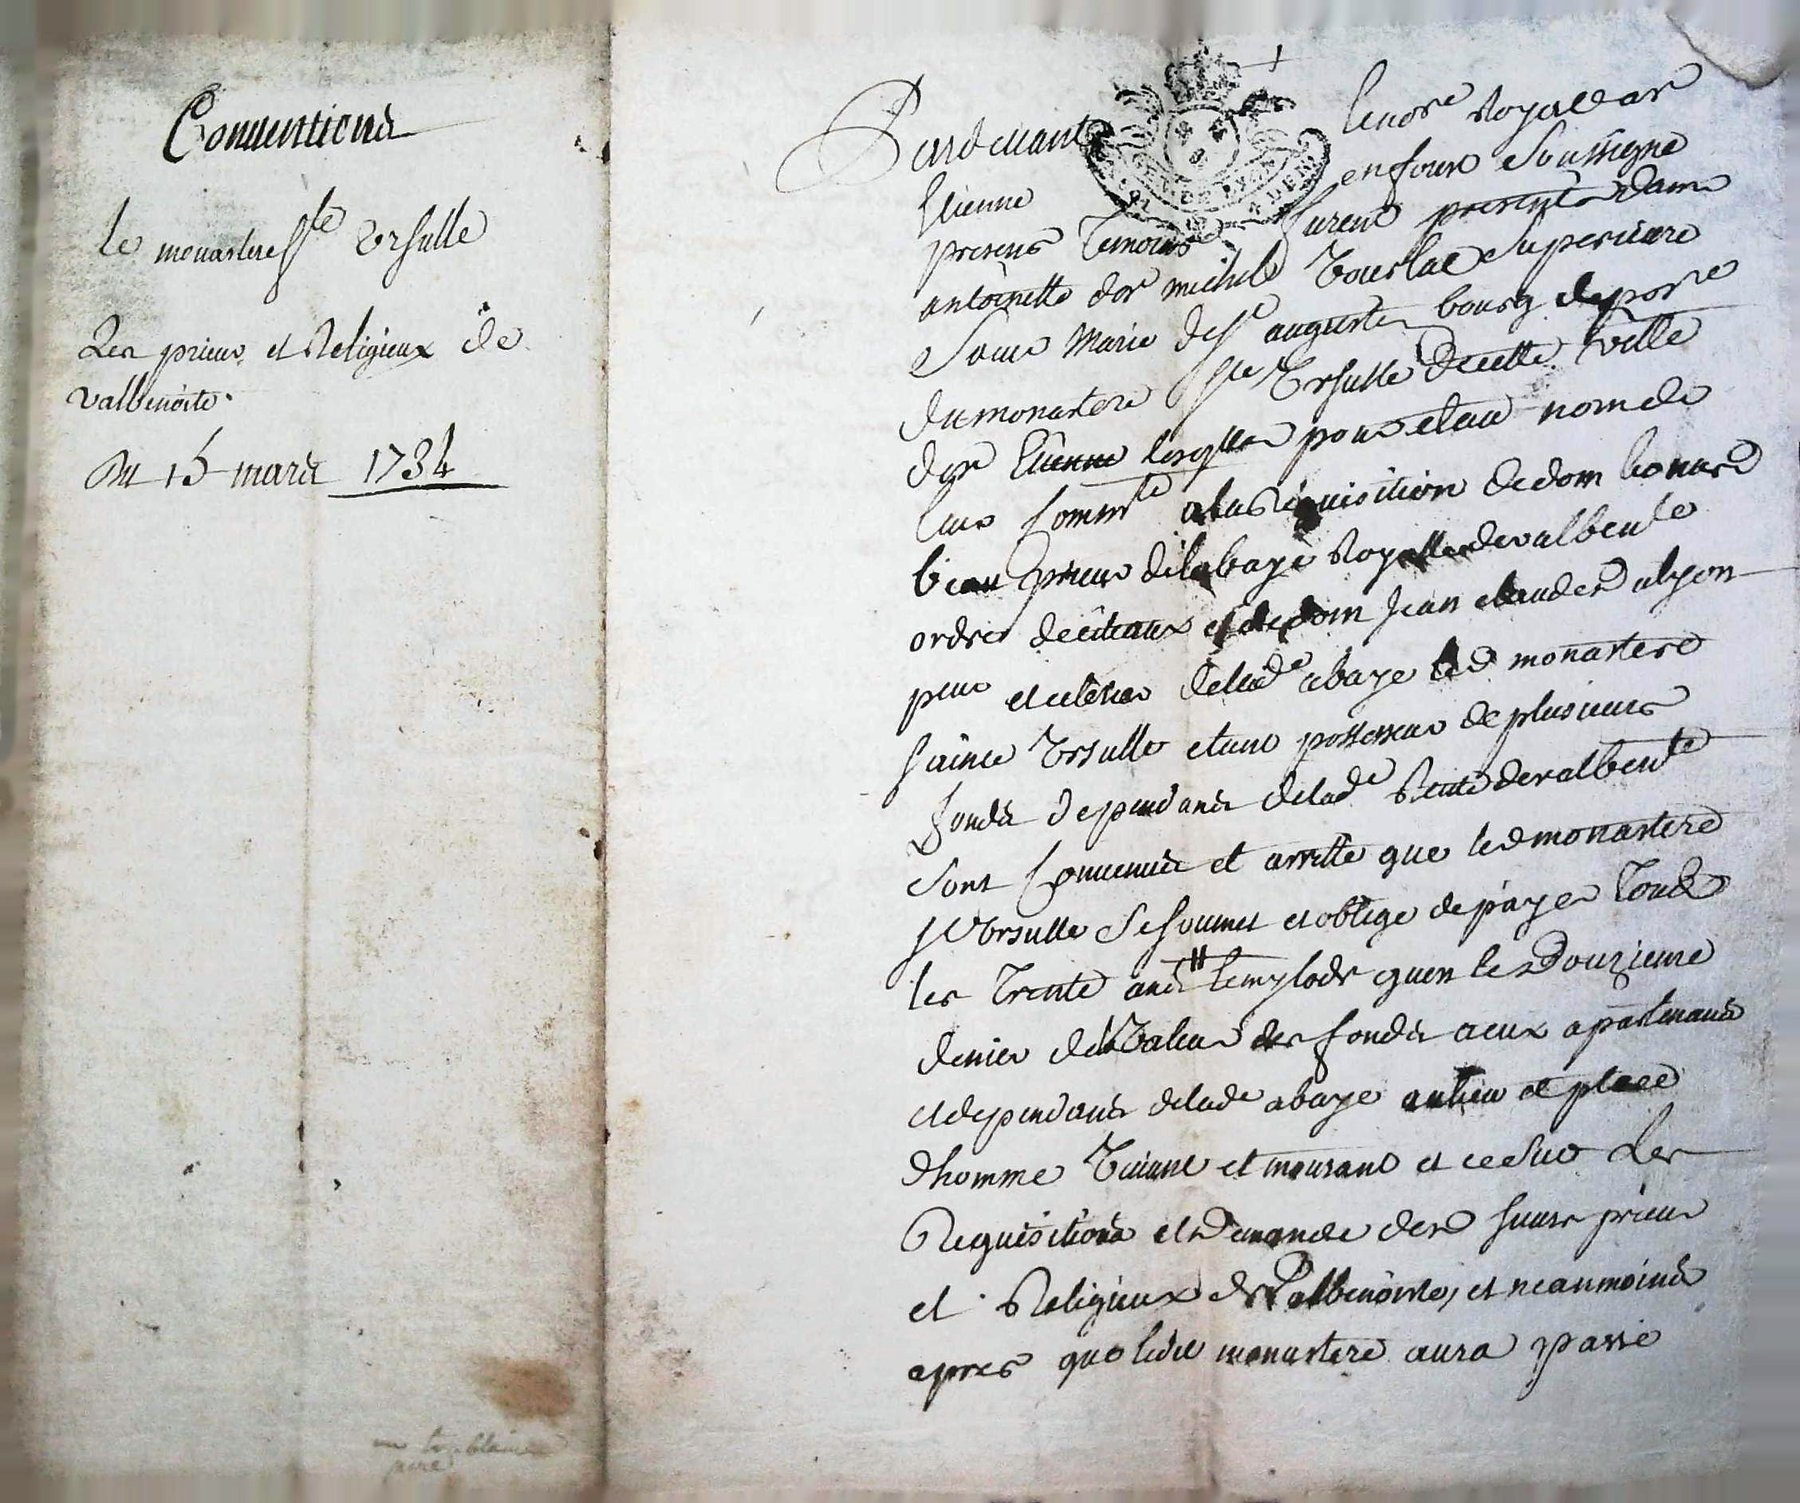 Conventions
le monastere Ste Ursulle
Les prieur et Religieux de
valbenoite.
Du 15 mars 1734
Pardevant le nore Royal a St
Etienne en forux soussigné
presens temoins furent presente dame
antoinette de St michel Superieure
Soeur Marie de St augustin
du monastere Ste Ursulle de cette ville
de St Etienne lesqlles pour et au nom de
leur Commte a la Requisition de dom
prieur de labaye Royalle de valbente
ordre de citeaux et de dom Jean claude
et de lade abaye led monastere
sainte Ursulle etant possesseur de plusieurs
fonds dependans de lade Rente de valbente
sont Convenus et arretté que led monastere
Ste Ursulle se soumet et oblige de payer tous
les trente ans le mylods quen le douzieme
denier de la Valeur des fonds a eux apartenans
et dependans de lade abaye au lieu et place
dhomme vivant et mourant et ce sur les
Requisitions et demande des sieurs prieur
et Religieux de Valbenoiste, et neanmoins
apres que ledit monastere aura passé